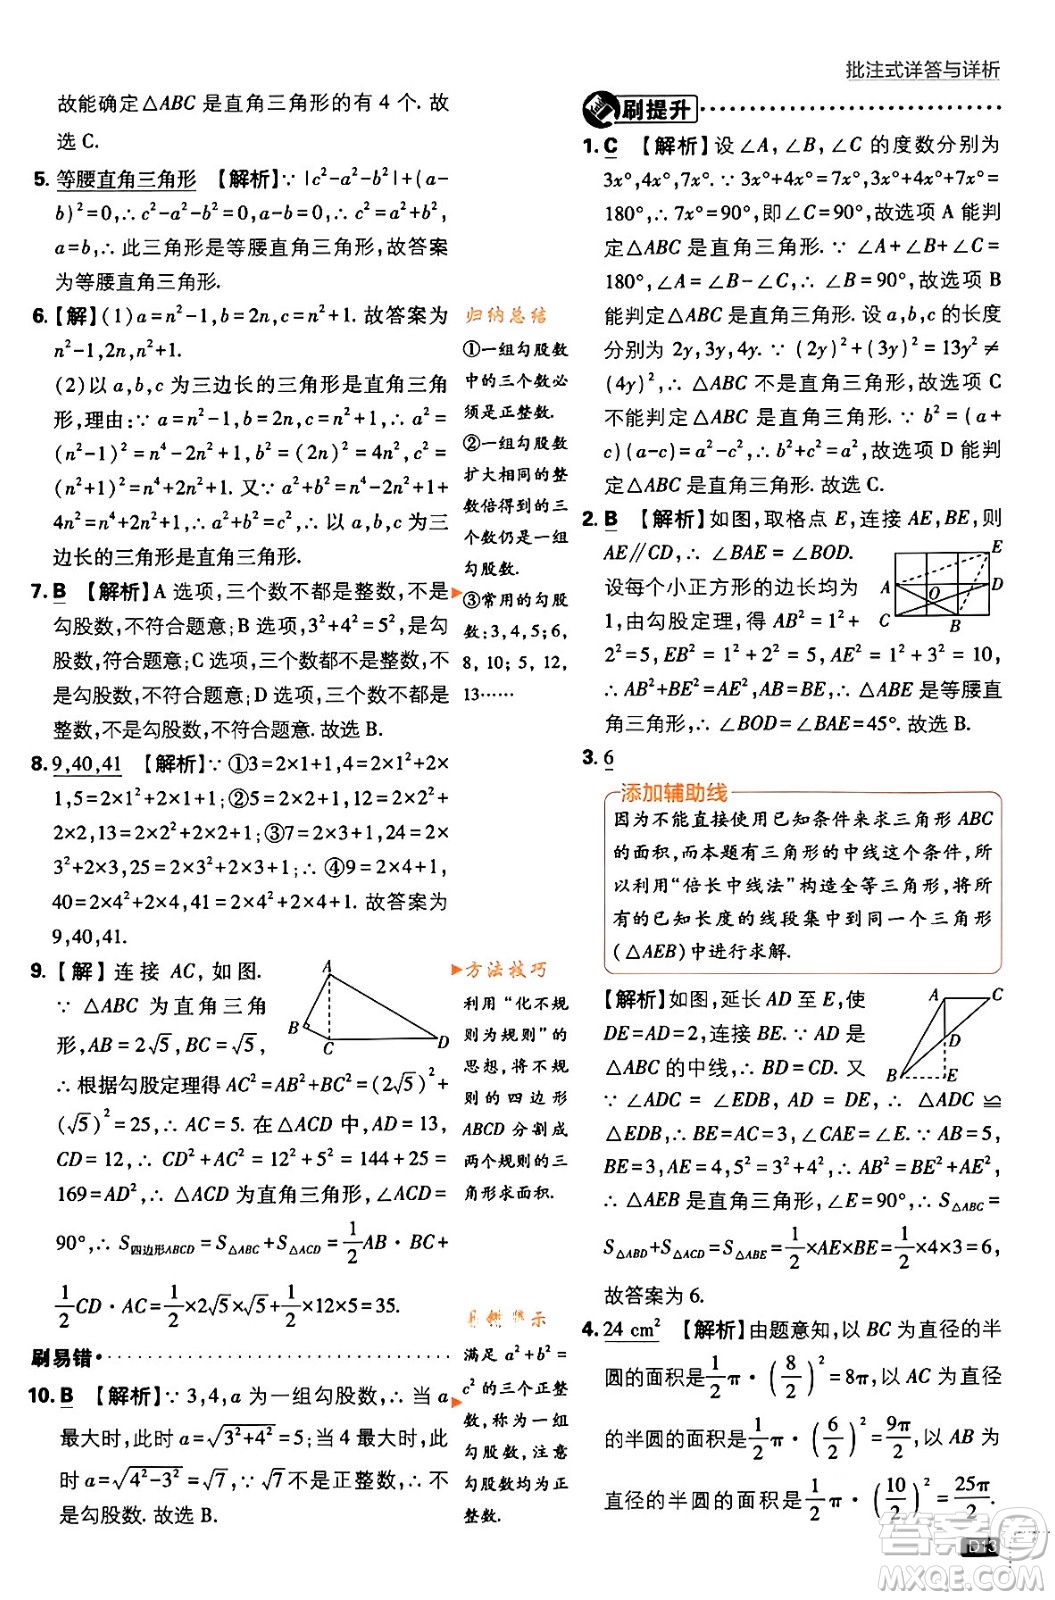 批注式详答与详析
故能确定△ABC是直角三角形的有 4 个. 故
选 C.
5. 等腰直角三角形 【解析】∵ |c²-a²-b²|+(a-
b)²=0,∴ c²-a²-b²=0,且 a-b=0,∴ c²=a²+b²,
a=b,∴ 此三角形是等腰直角三角形,故答案
为等腰直角三角形.
6.【解】(1)a=n²-1,b=2n,c=n²+1. 故答案为
n²-1,2n,n²+1.
(2)以 a,b,c 为三边长的三角形是直角三角
形,理由:∵ a=n²-1,b=2n,c=n²+1,∴ a²=
(n²-1)²=n⁴-2n²+1,b²=(2n)²=4n²,c²=
(n²+1)²=n⁴+2n²+1. 又∵ a²+b²=n⁴-2n²+1+
4n²=n⁴+2n²+1,∴ a²+b²=c²,∴ 以 a,b,c 为三
边长的三角形是直角三角形.
7. B 【解析】A 选项,三个数不都是整数,不是
勾股数,不符合题意;B 选项,3²+4²=5²,是勾
股数,符合题意;C 选项,三个数都不是整数,不
是勾股数,不符合题意;D 选项,三个数不都是
整数,不是勾股数,不符合题意. 故选 B.
8. 9,40,41 【解析】∵ ①3=2×1+1,4=2×1²+2×
1,5=2×1²+2×1+1;②5=2×2+1,12=2×2²+
2×2,13=2×2²+2×2+1;③7=2×3+1,24=2×
3²+2×3,25=2×3²+2×3+1;∴ ④9=2×4+1,
40=2×4²+2×4,41=2×4²+2×4+1. 故答案为
9,40,41.
9.【解】连接 AC,如图.
∵ △ABC 为直角三角
形,AB=2√5,BC=√5,
∴ 根据勾股定理得 AC²=AB²+BC²=(2√5)²+
(√5)²=25,∴ AC=5. 在△ACD 中,AD=13,
CD=12,∴ CD²+AC²=12²+5²=144+25=
169=AD²,∴ △ACD 为直角三角形,∠ACD=
90°,∴ S四边形ABCD=S△ABC+S△ACD=1/2AB·BC+
1/2CD·AC=1/2×2√5×√5+1/2×12×5=35.
A
B
C
D
刷易错
10. B 【解析】∵ 3,4,a 为一组勾股数,∴ 当 a
最大时,此时 a=√(3²+4²)=5;当 4 最大时,此
时 a=√(4²-3²)=√7,∵ √7不是正整数,∴ 不
是勾股数. 故选 B.
归纳总结
①一组勾股数
中的三个数必
须是正整数.
②一组勾股数
扩大相同的整
数倍得到的三
个数仍是一组
勾股数.
③常用的勾股
数:3,4,5;6,
8,10;5,12,
13……
方法技巧
利用“化不规
则为规则”的
思想,将不规
则的四边形
ABCD 分割成
两个规则的三
角形求面积.
易错提示
满足 a²+b²=
c² 的三个正整
数,称为一组
勾股数,注意
勾股数均为正
整数.
刷提升
1. C 【解析】设 ∠A,∠B,∠C 的度数分别为
3x°,4x°,7x°,∵ 3x°+4x°=7x°,3x°+4x°+7x°=
180°,∴ 7x°=90°,即∠C=90°,故选项 A 能判
定△ABC 是直角三角形. ∵ ∠A+∠B+∠C=
180°,∠B=∠A+∠C,∴ ∠B=90°,故选项 B
能判定△ABC 是直角三角形. 设 a,b,c 的长度
分别为 2y,3y,4y. ∵ (2y)²+(3y)²=13y²≠
(4y)²,∴ △ABC 不是直角三角形,故选项 C
不能判定△ABC 是直角三角形. ∵ b²=(a+
c)(a-c)=a²-c²,∴ b²+c²=a²,故选项 D 能判定
△ABC 是直角三角形. 故选 C.
2. B 【解析】如图,取格点 E,连接 AE,BE,则
AE∥CD,∴ ∠BAE=∠BOD.
设每个小正方形的边长均为
1,由勾股定理,得 AB²=1²+
2²=5,EB²=1²+2²=5,AE²=1²+3²=10,
∴ AB²+BE²=AE²,AB=BE,∴ △ABE 是等腰直
角三角形,∴ ∠BOD=∠BAE=45°. 故选 B.
E
A
O
D
C
B
3. 6
添加辅助线
因为不能直接使用已知条件来求三角形 ABC
的面积,而本题有三角形的中线这个条件,所
以利用“倍长中线法”构造全等三角形,将所
有的已知长度的线段集中到同一个三角形
(△AEB)中进行求解.
【解析】如图,延长 AD 至 E,使
DE=AD=2,连接 BE.∵ AD 是
△ABC 的中线,∴ BD=CD. 又
∵ ∠ADC=∠EDB,AD=DE,∴ △ADC≌
△EDB,∴ BE=AC=3,∠CAE=∠E.∵ AB=5,
BE=3,AE=4,5²=3²+4²,∴ AB²=BE²+AE²,
∴ △AEB 是直角三角形,∠E=90°,∴ S△ABC=
S△ABD+S△ADC=S△ABE=1/2×AE×BE=1/2×4×3=6,
故答案为 6.
A
C
D
B
E
4. 24 cm² 【解析】由题意知,以 BC 为直径的半
圆的面积是1/2π·(8/2)²=8π,以 AC 为直径
的半圆的面积是1/2π·(6/2)²=9π/2,以 AB 为
直径的半圆的面积是1/2π·(10/2)²=25π/2.
D13
答案圈
MXQE.COM